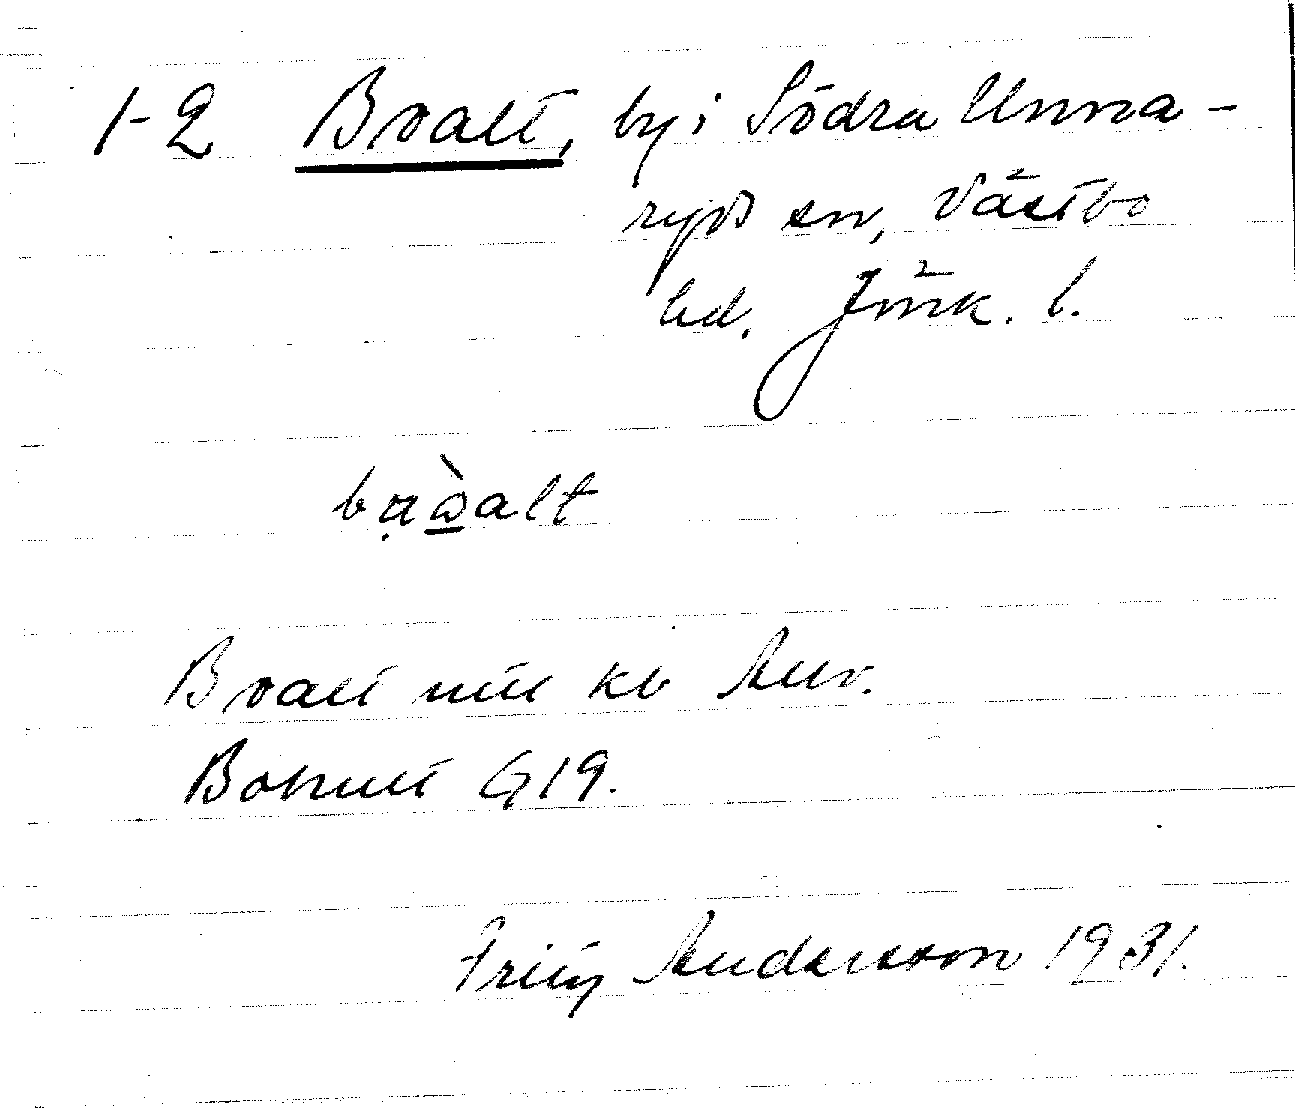 1-2 Boalt, by i Södra Unna-
ryds sn, Västbo
hd. Jönk. l.
bo̯alt
Boalt uttl kb Allv.
Bohult G19.
Fritz Andersson 1931.